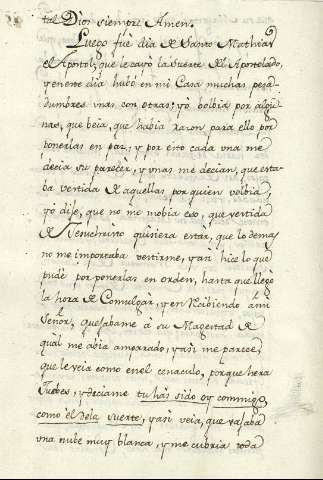 tal Dios siempre Amen.
Luego fué dia de Santo Mathias
el Apostol, que le cayó la suerte del Apostolado,
y en este dia hubó en mi Casa muchas pesa-
dumbres unas con otras; yó bolbia por algu-
nas, que beia, que habia razon para ello por
ponerlas en paz, y por esto cada una me
decia su parecèr, y unas me decian, que esta-
ba vestida de aquellas por quien volbia,
yó dije, que no me mobia eso, que vestida
de Jesuchristo quisiera estàr, que lo demas
no me importaba vestirme, y asi hice lo que
pude por ponerlas en orden, hasta que llegó
la hora de Comulgàr, y en Recibiendo à mi
Señor, quejabame à su Magestad de
qual me abia amparado, y asi me parece,
que le veia como en el cenaculo, porque hera
Jueves, y deciame tu hàs sido oy conmigo
como el de la suerte, y asi veia, que vajaba
una nube muy blanca, y me cubria toda